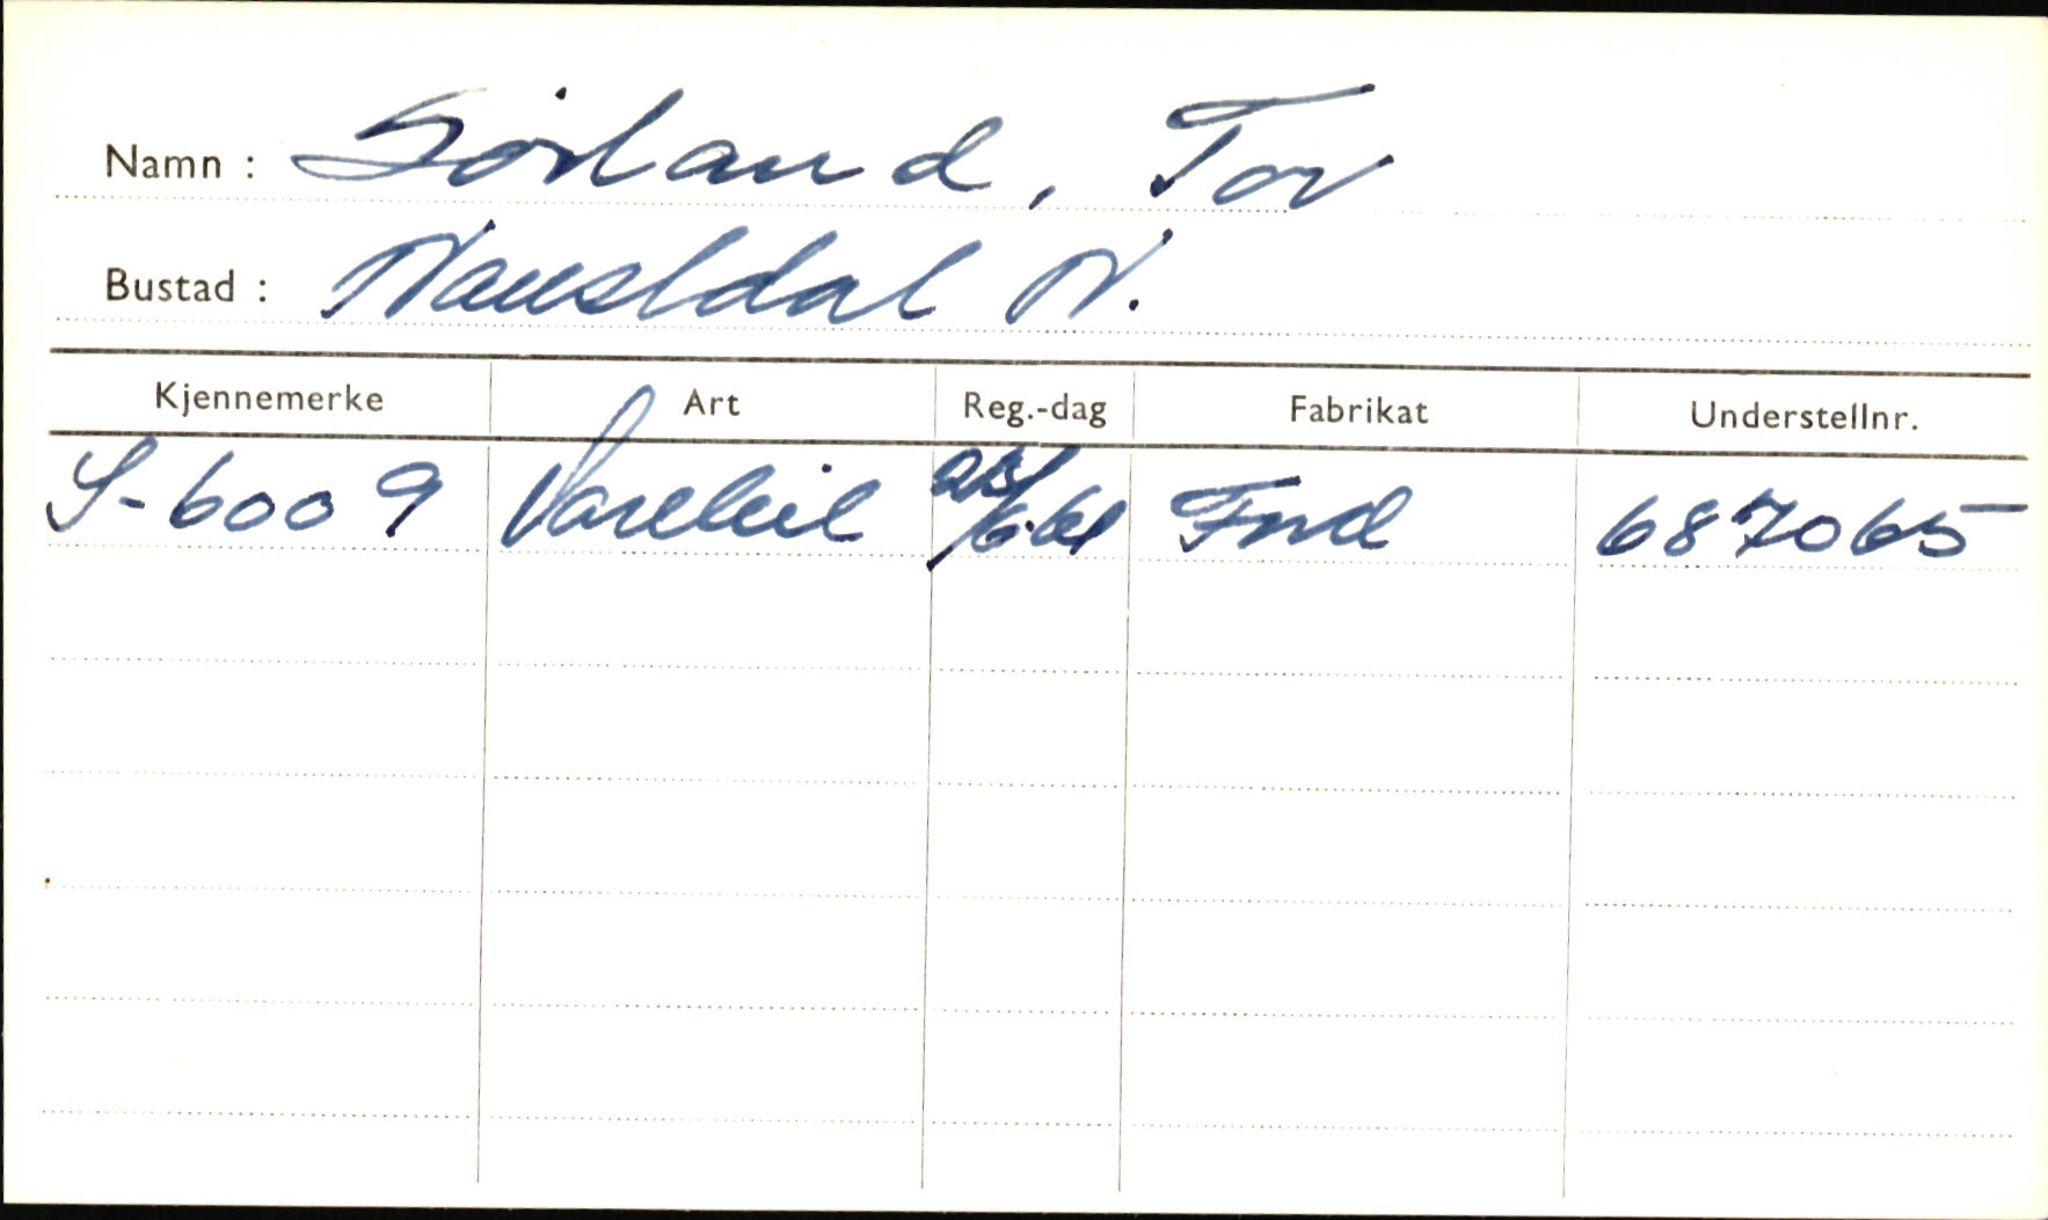 Namn : Sörland, Tor
Bustad : Naustdal N.
Kjennemerke Art Reg.-dag Fabrikat Understellnr.
S-6009 Varebil Ford 687065